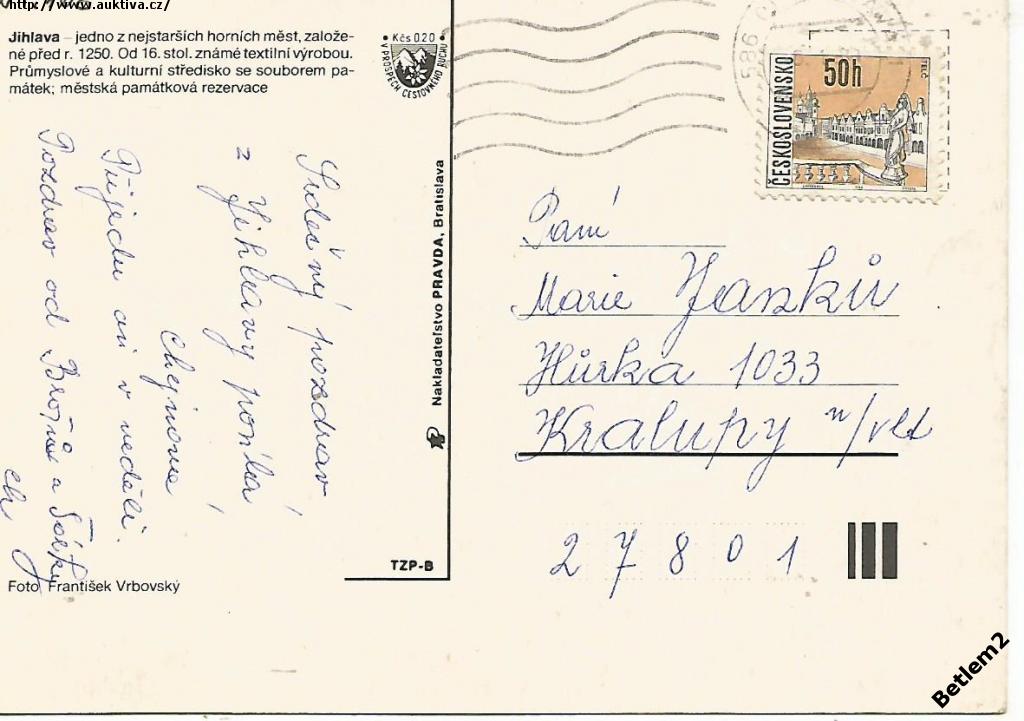 http://www.auktiva.cz/
Jihlava – jedno z nejstarších horních měst, založe-
né před r. 1250. Od 16. stol. známé textilní výrobou.
Průmyslové a kulturní středisko se souborem pa-
mátek; městská památková rezervace
• Kčs 0.20 •
V PROSPĚCH CESTOVNÉHO RUCHU
586
ČESKOSLOVENSKO
50h
TELČ
Srdečný pozdrav
z Jihlavy posílá
Přijedu asi v neděli.
Pozdrav od
a
Nakladateľstvo PRAVDA, Bratislava
TZP-B
Foto František Vrbovský
Paní
Marie Janků
Hůrka 1033
Kralupy n/vlt
27801
Betlem2